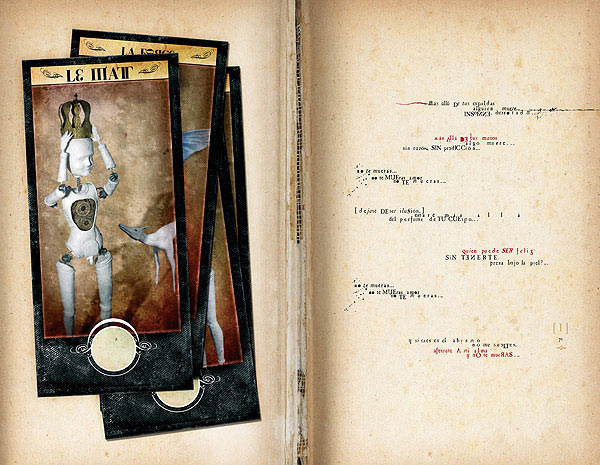 LE MAT
LA FORCE
Más allá DE tus espaldas
alguien muere
derrotado...
más Allá DE tus manos
algo muere...
sin razón, SIN prediCCIón...
no te mueras...
no te MUEras amor
no TE mueras...
[dejame DEser ilusión,]
estaré más allá
del perfume deTU CUErpo...
quien puede SER feliz
SiN TENERTE
presa bajo la piel?...
no te mueras...
no te MUEras amor
no TE mueras...
[ ]
y si caes en el abismo
no me suelTes,
aferrate A mi alma
y nO te mueRAS...